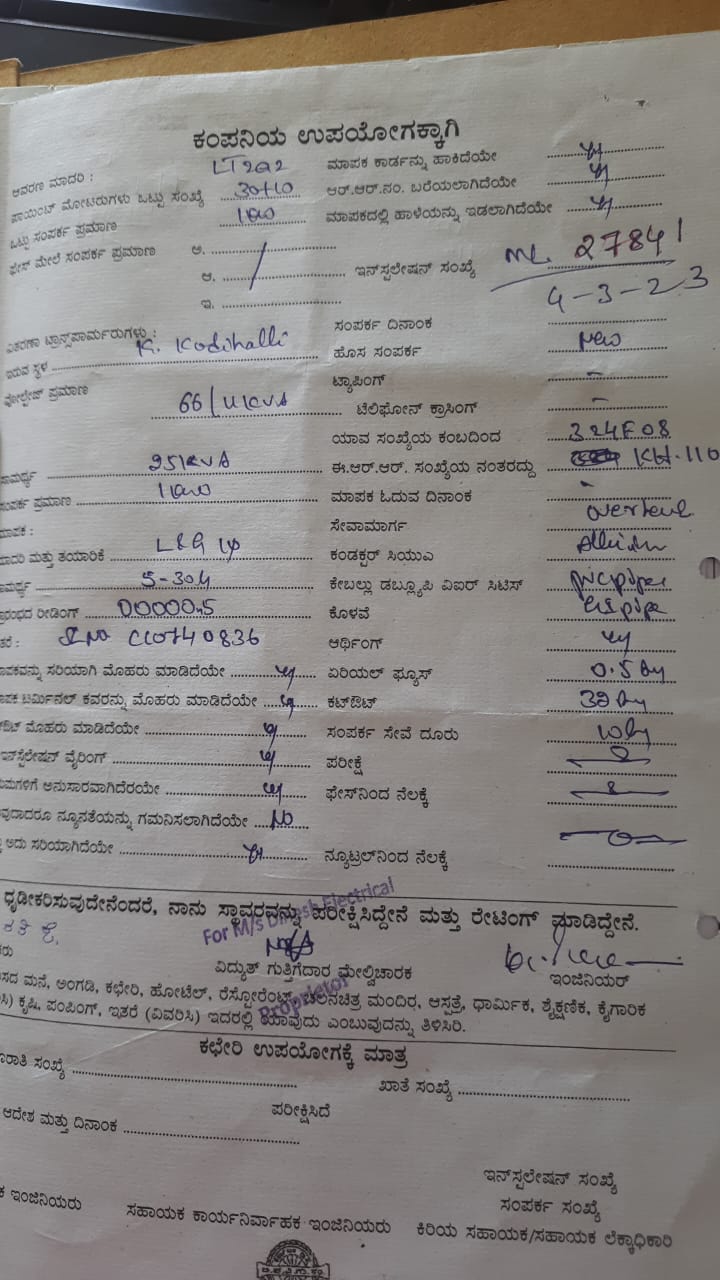 ಕಂಪನಿಯ ಉಪಯೋಗಕ್ಕಾಗಿ
ಆವರಣ ಮಾದರಿ : LT2a2 ಮಾಪಕ ಕಾರ್ಡನ್ನು ಹಾಕಿದೆಯೇ
ಪಾಯಿಂಟ್ ಮೋಟರುಗಳು ಒಟ್ಟು ಸಂಖ್ಯೆ 30+10 ಆರ್.ಆರ್.ನಂ. ಬರೆಯಲಾಗಿದೆಯೇ
ಒಟ್ಟು ಸಂಪರ್ಕ ಪ್ರಮಾಣ 1kw ಮಾಪಕದಲ್ಲಿ ಹಾಳೆಯನ್ನು ಇಡಲಾಗಿದೆಯೇ
ಫೇಸ್ ಮೇಲೆ ಸಂಪರ್ಕ ಪ್ರಮಾಣ ಅ.
ಆ. ಇನ್‌ಸ್ಟಲೇಷನ್ ಸಂಖ್ಯೆ ML 27841
ಇ. 4-3-23
ವಿತರಣಾ ಟ್ರಾನ್ಸ್‌ಫಾರ್ಮರುಗಳು : ಸಂಪರ್ಕ ದಿನಾಂಕ
ಇರುವ ಸ್ಥಳ K. Kodihalli ಹೊಸ ಸಂಪರ್ಕ New
ವೋಲ್ಟೇಜ್ ಪ್ರಮಾಣ ಟ್ಯಾಪಿಂಗ್ -
66/11KVA ಟೆಲಿಫೋನ್ ಕ್ರಾಸಿಂಗ್ -
ಯಾವ ಸಂಖ್ಯೆಯ ಕಂಬದಿಂದ 324F08
ಸಾಮರ್ಥ್ಯ 25KVA ಈ.ಆರ್.ಆರ್. ಸಂಖ್ಯೆಯ ನಂತರದ್ದು KH.110
ಸಂಪರ್ಕ ಪ್ರಮಾಣ 1kw ಮಾಪಕ ಓದುವ ದಿನಾಂಕ -
ಸೇವಾಮಾರ್ಗ
ಮಾದರಿ ಮತ್ತು ತಯಾರಿಕೆ L&G 1φ ಕಂಡಕ್ಟರ್ ಸಿಯುಎ
ಸಾಮರ್ಥ್ಯ 5-30A ಕೇಬಲ್ಲು ಡಬ್ಲ್ಯೂಪಿ ವಿಐರ್ ಸಿಟಿಸ್ pvc pipe
ಪ್ರಾರಂಭದ ರೀಡಿಂಗ್ 00000.5 ಕೊಳವೆ GI pipe
SL No CC0740836 ಆರ್ಥಿಂಗ್
ಮಾಪಕವನ್ನು ಸರಿಯಾಗಿ ಮೊಹರು ಮಾಡಿದೆಯೇ ಏರಿಯಲ್ ಫ್ಯೂಸ್
ಮಾಪಕ ಟರ್ಮಿನಲ್ ಕವರನ್ನು ಮೊಹರು ಮಾಡಿದೆಯೇ ಕಟ್‌ಔಟ್
ಕಟ್‌ಔಟ್ ಮೊಹರು ಮಾಡಿದೆಯೇ ಸಂಪರ್ಕ ಸೇವೆ ದೂರು
ಇನ್‌ಸ್ಟಲೇಷನ್ ವೈರಿಂಗ್ ಪರೀಕ್ಷೆ
ನಿಯಮಗಳಿಗೆ ಅನುಸಾರವಾಗಿದೆರಯೇ ಫೇಸ್‌ನಿಂದ ನೆಲಕ್ಕೆ
ಯಾವುದಾದರೂ ನ್ಯೂನತೆಯನ್ನು ಗಮನಿಸಲಾಗಿದೆಯೇ No
ಅದು ಸರಿಯಾಗಿದೆಯೇ ನ್ಯೂಟ್ರಲ್‌ನಿಂದ ನೆಲಕ್ಕೆ
ಧೃಡೀಕರಿಸುವುದೇನೆಂದರೆ, ನಾನು ಸ್ಥಾವರವನ್ನು ಪರೀಕ್ಷಿಸಿದ್ದೇನೆ ಮತ್ತು ರೇಟಿಂಗ್ ಮಾಡಿದ್ದೇನೆ.
For M/s Dinesh Electrical
ವಿದ್ಯುತ್ ಗುತ್ತಿಗೆದಾರ ಮೇಲ್ವಿಚಾರಕ ಇಂಜಿನಿಯರ್
Proprietor
ವಾಸದ ಮನೆ, ಅಂಗಡಿ, ಕಛೇರಿ, ಹೋಟೆಲ್, ರೆಸ್ಟೋರೆಂಟ್, ಚಲನಚಿತ್ರ ಮಂದಿರ, ಆಸ್ಪತ್ರೆ, ಧಾರ್ಮಿಕ, ಶೈಕ್ಷಣಿಕ, ಕೈಗಾರಿಕ
ಕೃಷಿ, ಪಂಪಿಂಗ್, ಇತರೆ (ವಿವರಿಸಿ) ಇದರಲ್ಲಿ ಯಾವುದು ಎಂಬುವುದನ್ನು ತಿಳಿಸಿರಿ.
ಕಛೇರಿ ಉಪಯೋಗಕ್ಕೆ ಮಾತ್ರ
ಸಂಖ್ಯೆ ಖಾತೆ ಸಂಖ್ಯೆ
ಪರೀಕ್ಷಿಸಿದೆ
ಆದೇಶ ಮತ್ತು ದಿನಾಂಕ
ಇನ್‌ಸ್ಟಲೇಷನ್ ಸಂಖ್ಯೆ
ಸಂಪರ್ಕ ಸಂಖ್ಯೆ
ಇಂಜಿನಿಯರು ಸಹಾಯಕ ಕಾರ್ಯನಿರ್ವಾಹಕ ಇಂಜಿನಿಯರು ಕಿರಿಯ ಸಹಾಯಕ/ಸಹಾಯಕ ಲೆಕ್ಕಾಧಿಕಾರಿ